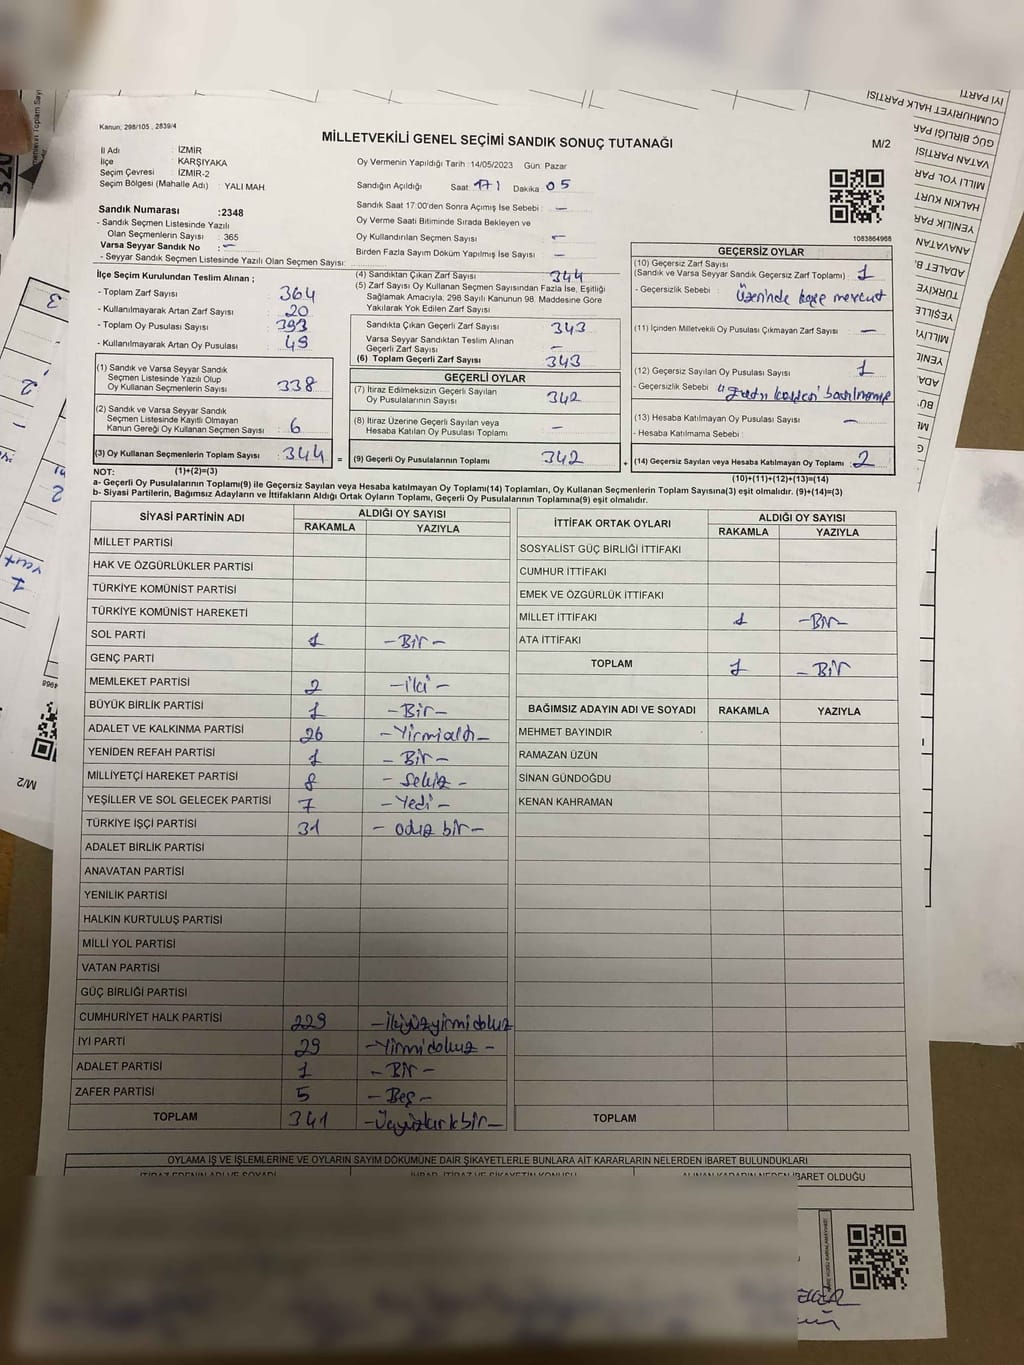 Kanun; 298/105 , 2839/4
MİLLETVEKİLİ GENEL SEÇİMİ SANDIK SONUÇ TUTANAĞI
M/2
İl Adı : İZMİR
İlçe : KARŞIYAKA
Seçim Çevresi : İZMİR-2
Seçim Bölgesi (Mahalle Adı) : YALI MAH
Oy Vermenin Yapıldığı Tarih :14/05/2023 Gün: Pazar
Sandığın Açıldığı Saat: 17 Dakika: 05
Sandık Saat 17:00'den Sonra Açımış İse Sebebi : —
Oy Verme Saati Bitiminde Sırada Bekleyen ve
Oy Kullandırılan Seçmen Sayısı : —
Birden Fazla Sayım Döküm Yapılmış İse Sayısı : —
1083864968
Sandık Numarası :2348
- Sandık Seçmen Listesinde Yazılı
Olan Seçmenlerin Sayısı : 365
Varsa Seyyar Sandık No : —
- Seyyar Sandık Seçmen Listesinde Yazılı Olan Seçmen Sayısı:
İlçe Seçim Kurulundan Teslim Alınan ;
- Toplam Zarf Sayısı : 364
- Kullanılmayarak Artan Zarf Sayısı : 20
- Toplam Oy Pusulası Sayısı : 393
- Kullanılmayarak Artan Oy Pusulası : 49
(1) Sandık ve Varsa Seyyar Sandık
Seçmen Listesinde Yazılı Olup
Oy Kullanan Seçmenlerin Sayısı : 338
(2) Sandık ve Varsa Seyyar Sandık
Seçmen Listesinde Kayıtlı Olmayan
Kanun Gereği Oy Kullanan Seçmen Sayısı : 6
(3) Oy Kullanan Seçmenlerin Toplam Sayısı : 344
(4) Sandıktan Çıkan Zarf Sayısı : 344
(5) Zarf Sayısı Oy Kullanan Seçmen Sayısından Fazla İse, Eşitliği
Sağlamak Amacıyla; 298 Sayılı Kanunun 98. Maddesine Göre
Yakılarak Yok Edilen Zarf Sayısı :
Sandıkta Çıkan Geçerli Zarf Sayısı : 343
Varsa Seyyar Sandıktan Teslim Alınan
Geçerli Zarf Sayısı : —
(6) Toplam Geçerli Zarf Sayısı : 343
GEÇERLİ OYLAR
(7) İtiraz Edilmeksizin Geçerli Sayılan
Oy Pusulalarının Sayısı : 342
(8) İtiraz Üzerine Geçerli Sayılan veya
Hesaba Katılan Oy Pusulası Toplamı : —
= (9) Geçerli Oy Pusulalarının Toplamı : 342
GEÇERSİZ OYLAR
(10) Geçersiz Zarf Sayısı
(Sandık ve Varsa Seyyar Sandık Geçersiz Zarf Toplamı) : 1
- Geçersizlik Sebebi : Üzerinde kaşe mevcut
(11) İçinden Milletvekili Oy Pusulası Çıkmayan Zarf Sayısı : —
(12) Geçersiz Sayılan Oy Pusulası Sayısı : 1
- Geçersizlik Sebebi
(13) Hesaba Katılmayan Oy Pusulası Sayısı : —
- Hesaba Katılmama Sebebi :
+ (14) Geçersiz Sayılan veya Hesaba Katılmayan Oy Toplamı : 2
NOT: (1)+(2)=(3)
(10)+(11)+(12)+(13)=(14)
a- Geçerli Oy Pusulalarının Toplamı(9) ile Geçersiz Sayılan veya Hesaba katılmayan Oy Toplamı(14) Toplamları, Oy Kullanan Seçmenlerin Toplam Sayısına(3) eşit olmalıdır. (9)+(14)=(3)
b- Siyasi Partilerin, Bağımsız Adayların ve İttifakların Aldığı Ortak Oyların Toplamı, Geçerli Oy Pusulalarının Toplamına(9) eşit olmalıdır.
SİYASİ PARTİNİN ADI ALDIĞI OY SAYISI
RAKAMLA YAZIYLA
MİLLET PARTİSİ
HAK VE ÖZGÜRLÜKLER PARTİSİ
TÜRKİYE KOMÜNİST PARTİSİ
TÜRKİYE KOMÜNİST HAREKETİ
SOL PARTİ 1 —Bir—
GENÇ PARTİ
MEMLEKET PARTİSİ 2 —iki—
BÜYÜK BİRLİK PARTİSİ 1 —Bir—
ADALET VE KALKINMA PARTİSİ 26 —Yirmialtı—
YENİDEN REFAH PARTİSİ 1 —Bir—
MİLLİYETÇİ HAREKET PARTİSİ 8 —Sekiz—
YEŞİLLER VE SOL GELECEK PARTİSİ 7 —Yedi—
TÜRKİYE İŞÇİ PARTİSİ 31 —otuz bir—
ADALET BİRLİK PARTİSİ
ANAVATAN PARTİSİ
YENİLİK PARTİSİ
HALKIN KURTULUŞ PARTİSİ
MİLLİ YOL PARTİSİ
VATAN PARTİSİ
GÜÇ BİRLİĞİ PARTİSİ
CUMHURİYET HALK PARTİSİ 229 —İkiyüzyirmidokuz
İYİ PARTİ 29 —Yirmidokuz—
ADALET PARTİSİ 1 —Bir—
ZAFER PARTİSİ 5 —Beş—
TOPLAM 341 —Üçyüzkırkbir—
İTTİFAK ORTAK OYLARI ALDIĞI OY SAYISI
RAKAMLA YAZIYLA
SOSYALİST GÜÇ BİRLİĞİ İTTİFAKI
CUMHUR İTTİFAKI
EMEK VE ÖZGÜRLÜK İTTİFAKI
MİLLET İTTİFAKI 1 —Bir—
ATA İTTİFAKI
TOPLAM 1 —Bir
BAĞIMSIZ ADAYIN ADI VE SOYADI RAKAMLA YAZIYLA
MEHMET BAYINDIR
RAMAZAN ÜZÜN
SİNAN GÜNDOĞDU
KENAN KAHRAMAN
TOPLAM
OYLAMA İŞ VE İŞLEMLERİNE VE OYLARIN SAYIM DÖKÜMÜNE DAİR ŞİKAYETLERLE BUNLARA AİT KARARLARIN NELERDEN İBARET BULUNDUKLARI
İTİRAZ EDENİN ADI VE SOYADI İHBAR, İTİRAZ VE ŞİKAYETİN KONUSU ALINAN KARARIN NEDEN İBARET OLDUĞU
İYİ PARTİ
CUMHURİYET HALK PARTİSİ
GÜÇ BİRLİĞİ PAR
VATAN PARTİSİ
MİLLİ YOL PAR
HALKIN KURT
YENİLİK PAR
ANAVATAN
ADALET B
TÜRKİYE
YEŞİLLE
MİLLİY
YENİ
ADA
BÜ
M/2